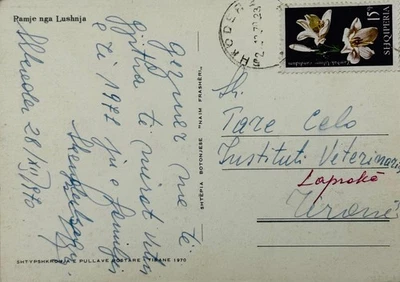 Pamje nga Lushnje
Shkoder 28/XII/970
Gëzuar me të
gjitha të mirat Vitin
e Ri 1971 ju e familjes
SHTËPIA BOTONJËSE "NAIM FRASHËRI"
SHTYPSHKRONJA E PULLAVE POSTARE TIRANË 1970
SHKODER
15q
SHQIPERIA
Sh.
Tare Celo
Instituti Veterinar
Laprakë
Tiranë